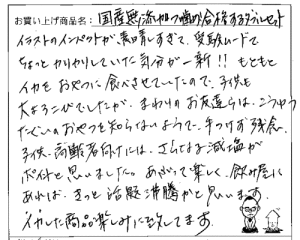 お買い上げ商品名： 国産無添加つ噛み合格するダルセット
イラストのインパクトが素晴しすぎて、受験ムードで
ちょっとカリカリしていた気分が一新！！もともと
イカをおやつに食べさせていたので、子供も
大よろこびでしたが、まわりのお友達らは、こうゆう
たぐいのおやつを知らないようで、手つけず残念。
子供、高齢者向けには、さらなる減塩が
ポイントと思いました。あがって楽しく、飲み屋に
あれば、きっと話題沸騰かと思います
イカした商品楽しみに致してます。